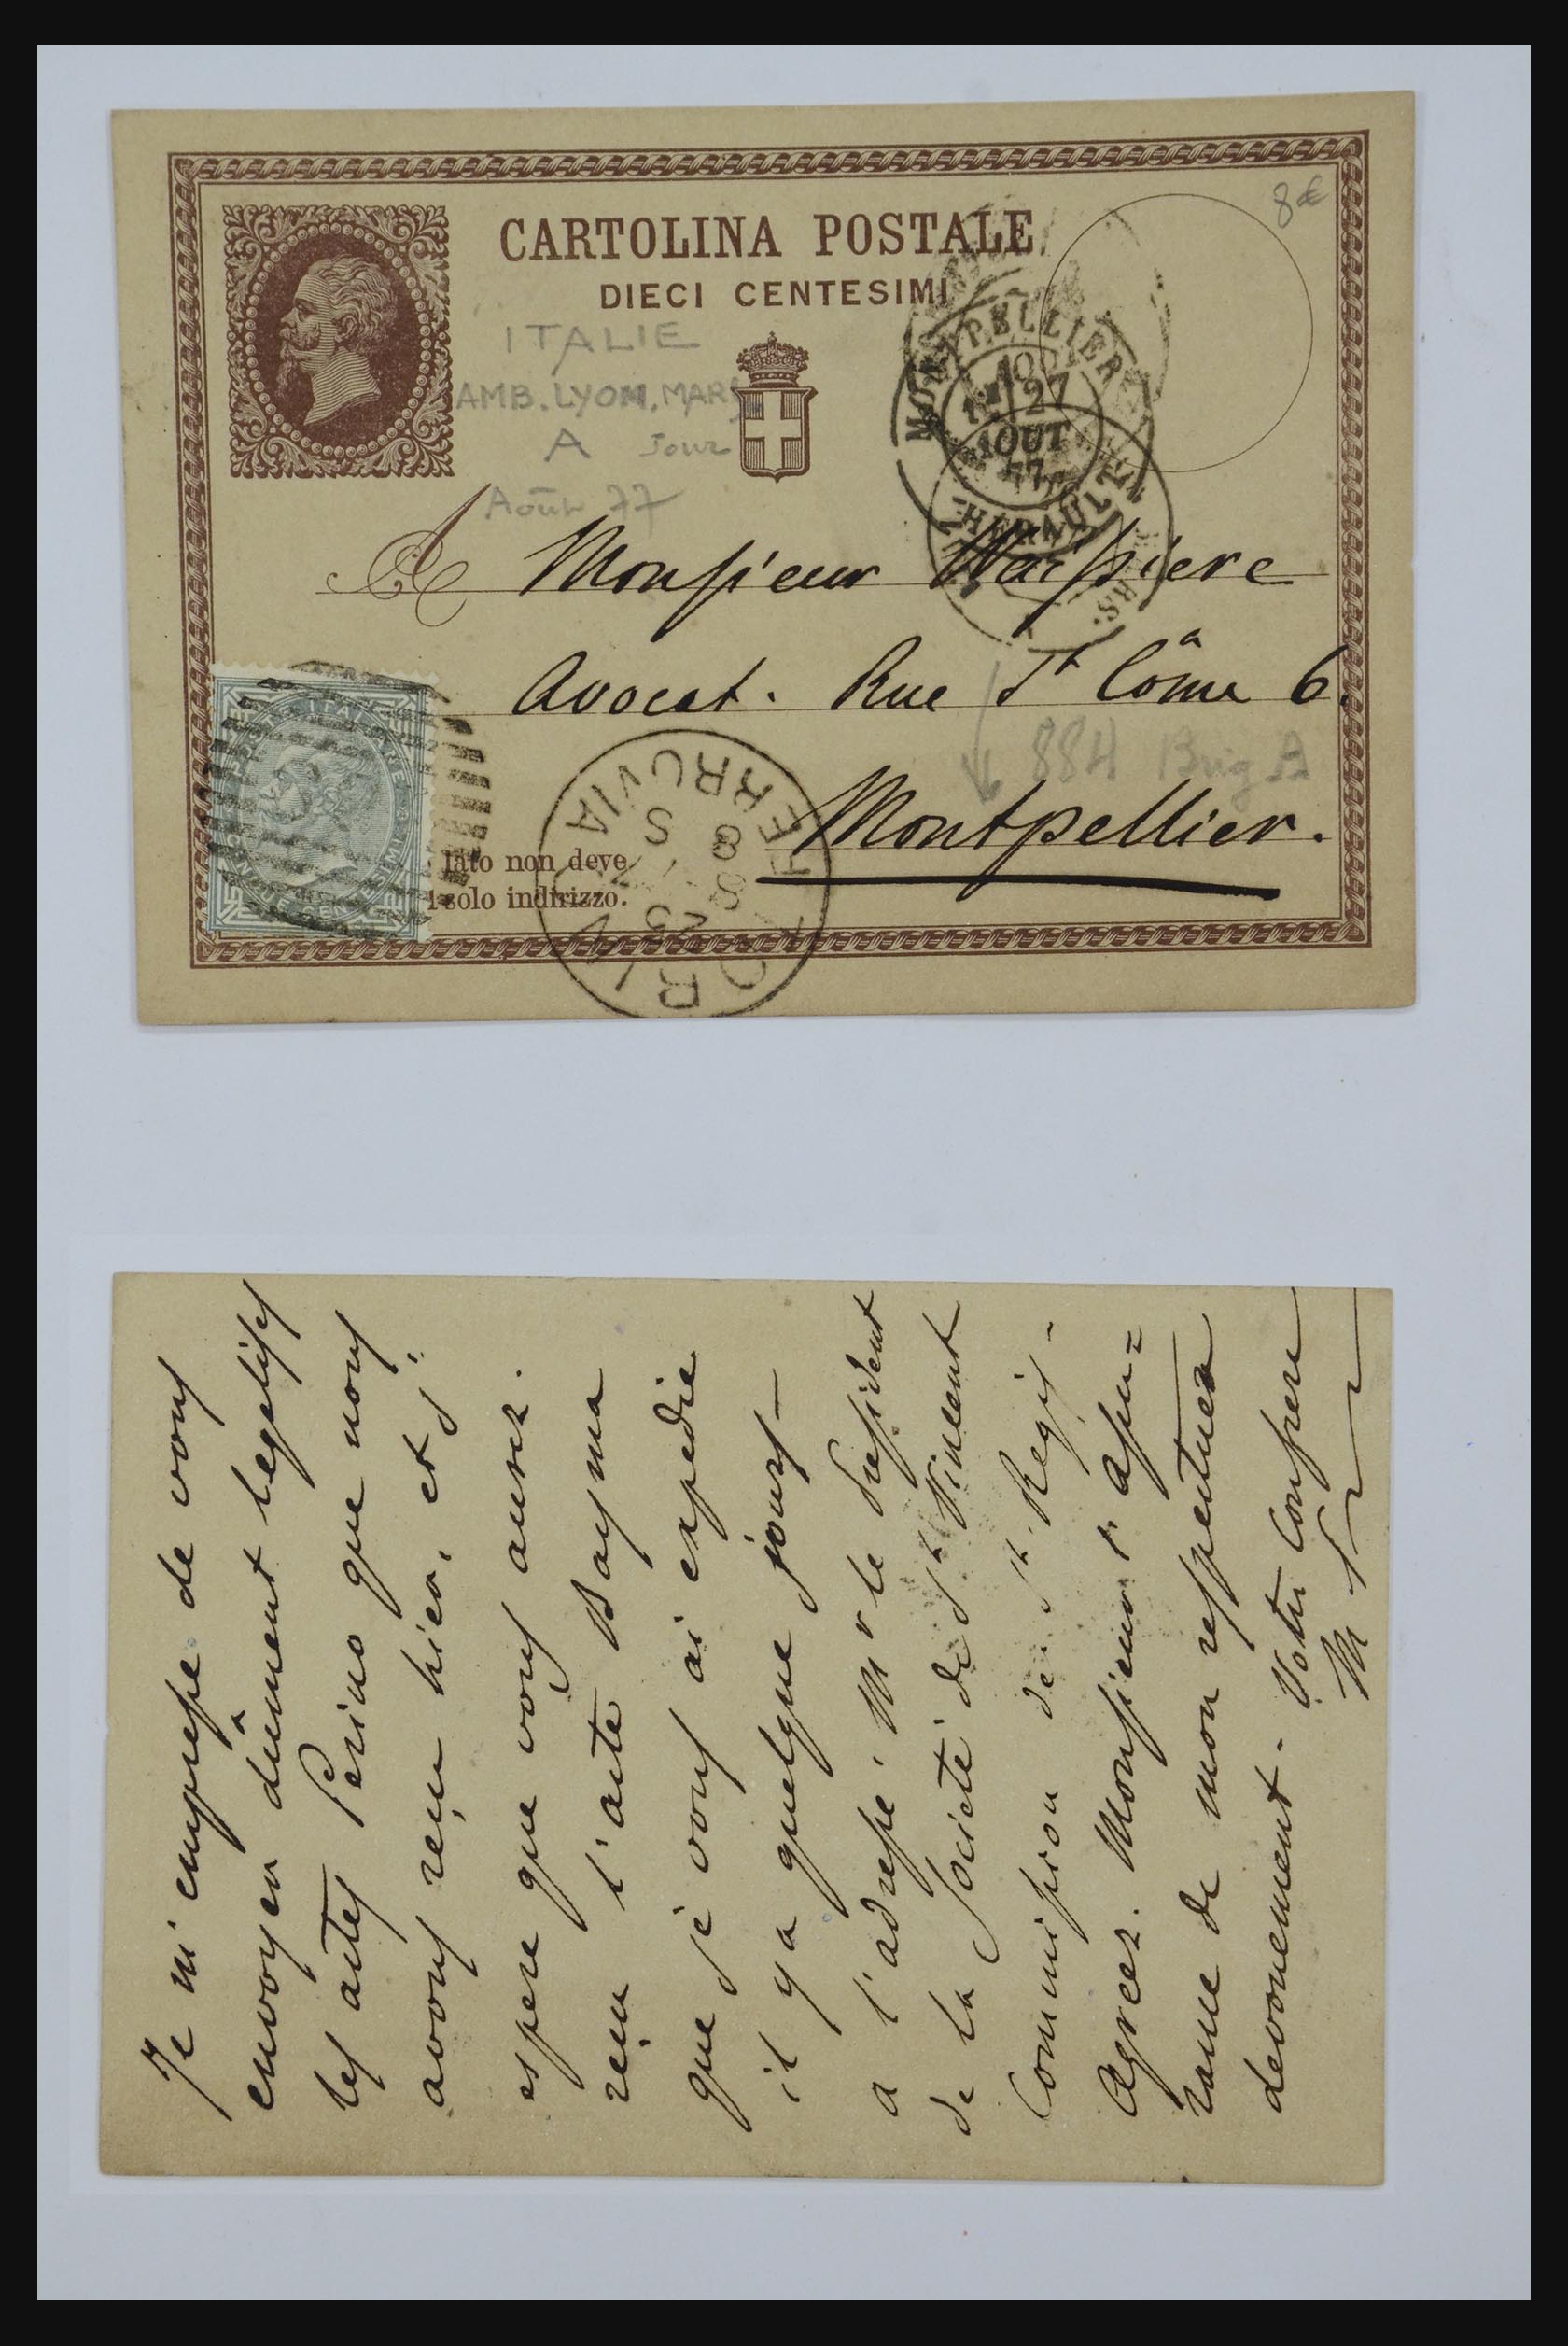 CARTOLINA POSTALE
DIECI CENTESIMI
8€
ITALIE
AMB. LYON. MARS
A Jour
Août 77
MONTPELLIER
27
AOUT
77
HERAULT
A Monsieur
Avocat. Rue St Côme 6.
884 Brig A
Montpellier.
lato non deve
solo indirizzo.
TORINO
FERROVIA
25
8 S
Je m'empresse de vous
envoyer dûment legalisés
les actes Perino que nous
avons reçu hier, et j'
espere que vous aurez
reçu l'acte Bayma
que je vous ai expedié
il y a quelque jours—
a l'adresse. Mr le President
de la Societé de St Vincent
Commission de St. Regis-
Agreez. Monsieur l'assu=
rance de mon respectueux
devouement. Votre Confrere